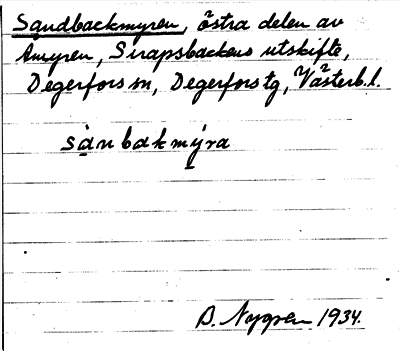 Sandbackmyren, östra delen av
Amyren, Sirapsbackens utskifte,
Degerfors sn, Degerfors tg, Västerb.l.
sànbakmýra
B. Nygren 1934.